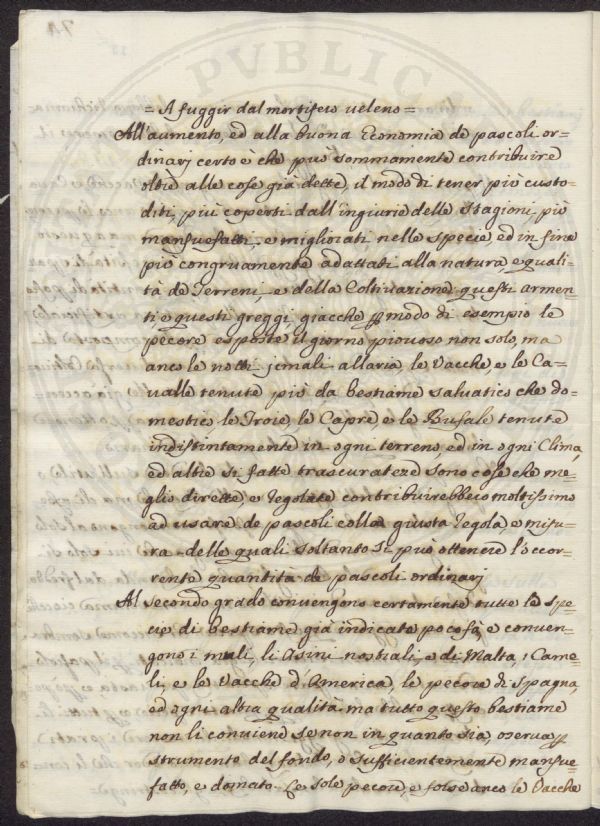 74
= A fuggir dal mortifero veleno =
All'aumento, ed alla buona Economia de pascoli or=
dinarj certo è che può sommamente contribuire
oltre alle cose già dette, il modo di tener più custo=
diti, più coperti dall'ingiurie delle stagioni, più
mansuefatti, e migliorati nelle specie ed in fine
più congruamente adattati alla natura, e quali=
tà de Terreni, e della Coltivazione questi armen=
ti e questi greggi, giacche p modo di esempio le
pecore esposte il giorno piovoso non solo, ma
anco le notti jemali all'aria, le Vacche, e le Ca=
valle tenute più da bestiame salvatico che do=
mestico, le Troie, le Capre e le Bufale tenute
indistintamente in ogni terreno, ed in ogni Clima,
ed altre si fatte trascuratezze sono cose che me=
glio dirette, e regolate contribuirebbero moltissimo
ad usare de pascoli colla giusta regola e misu=
ra delle quali soltanto si può ottenere l'occor=
rente quantità de pascoli ordinarj
Al secondo grado convengono certamente tutte le spe=
cie di bestiame già indicate poco fà, e conven=
gono i muli, li Asini nostrali, e di Malta, i Came=
li, e le Vacche d'America, le pecore di Spagna,
ed ogni altra qualità ma tutto questo bestiame
non li conviene se non in quanto sia, o serva p
strumento del fondo, o sufficientemente mansue=
fatto, e domato. Le sole pecore, e forse anco le Vacche